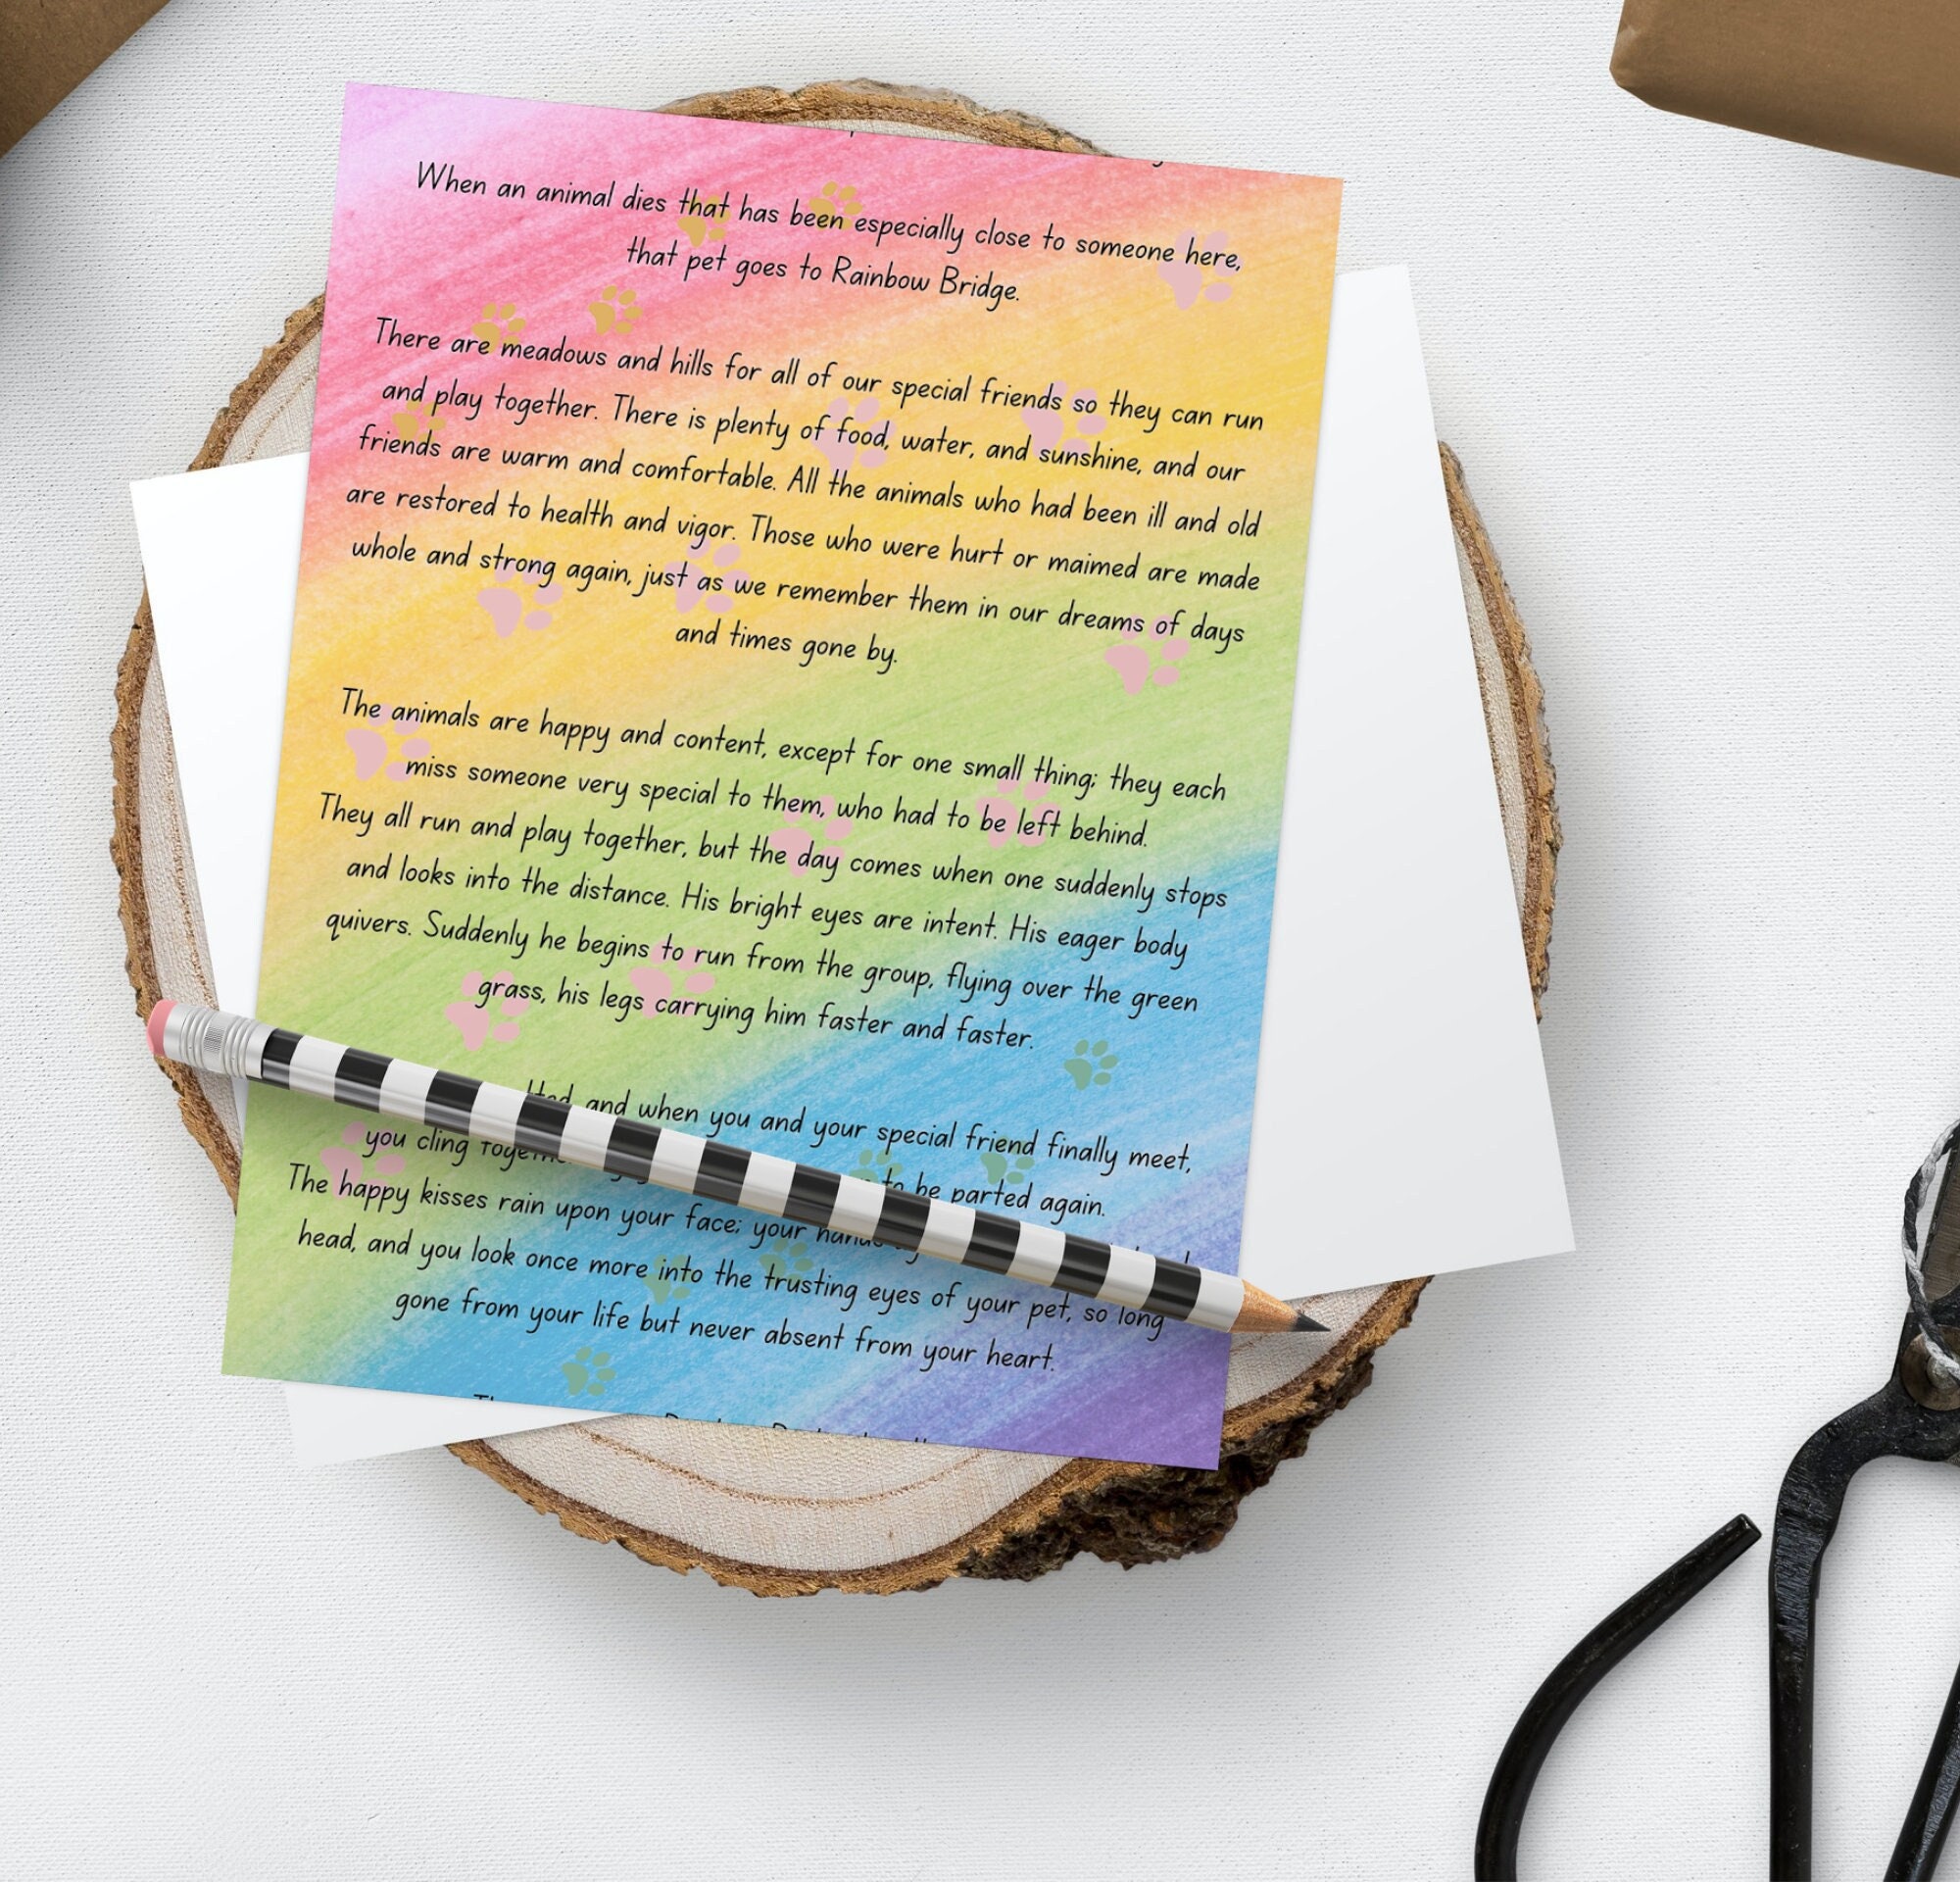 When an animal dies that has been especially close to someone here,
that pet goes to Rainbow Bridge.
There are meadows and hills for all of our special friends so they can run
and play together. There is plenty of food, water, and sunshine, and our
friends are warm and comfortable. All the animals who had been ill and old
are restored to health and vigor. Those who were hurt or maimed are made
whole and strong again, just as we remember them in our dreams of days
and times gone by.
The animals are happy and content, except for one small thing; they each
miss someone very special to them, who had to be left behind.
They all run and play together, but the day comes when one suddenly stops
and looks into the distance. His bright eyes are intent. His eager body
quivers. Suddenly he begins to run from the group, flying over the green
grass, his legs carrying him faster and faster.
and when you and your special friend finally meet,
you cling to be parted again.
The happy kisses rain upon your face; your
head, and you look once more into the trusting eyes of your pet, so long
gone from your life but never absent from your heart.